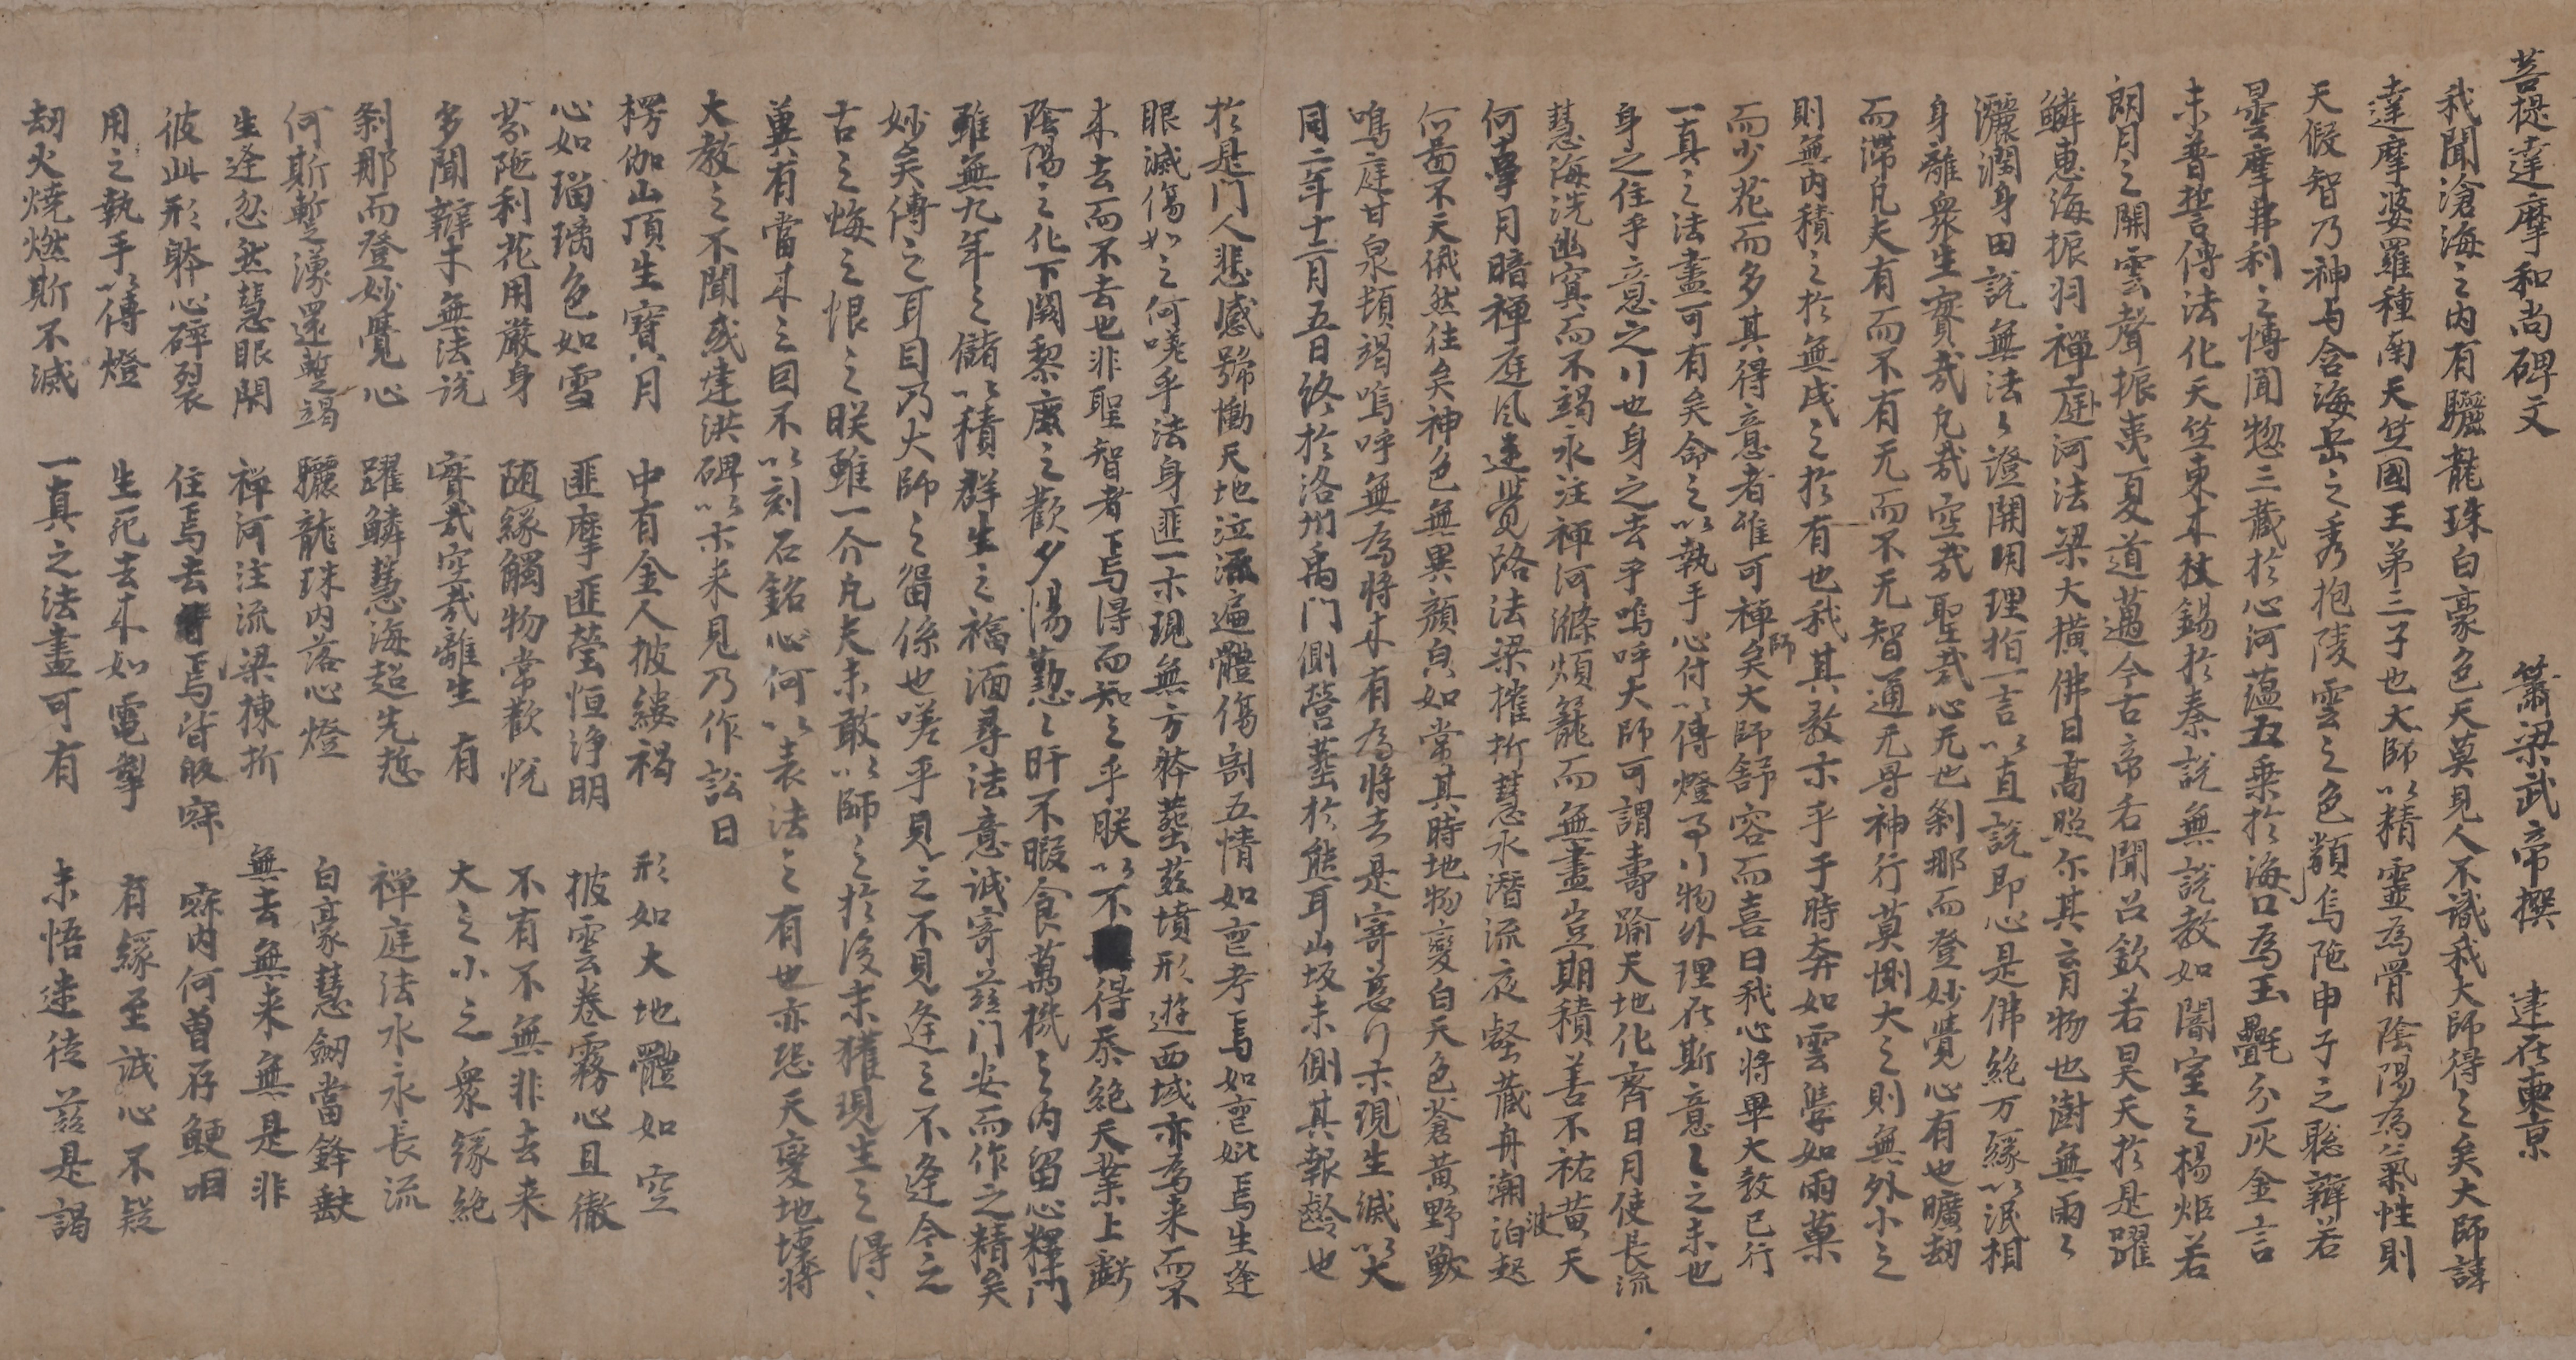 菩提達摩和尚碑文　蕭梁武帝撰　建在東京
我聞滄海之内有驪龍珠白豪色天莫見人不識我大師得之矣大師諱
達摩婆羅種南天竺國王弟三子也大師以精靈為骨陰陽為氣性則
天假智乃神与含海岳之秀抱陵雲之色類烏陁申子之聡辯若
曇摩弗利之博聞惣三藏於心河蘊五乗於海口為玉疊久灰金言
未普誓傳法化天竺東来杖錫於秦說無說教如闇室之楊炬若
朗月之開雲聲振夷夏道邁今古帝名聞召欽若昊天於是躍
鱗惠海振羽禪庭河法梁大橫佛日高照尓其育物也澍無雨之
灑潤身田說無法之證開明理指一言以直說即心是佛絶万緣以泯相
身離衆生實哉凡哉空哉聖哉心无也剎那而登妙覺心有也曠劫
而滯凡夫有而不有无而不无智通无㝵神行莫惻大之則無外小之
則無内積之於無成之於有也我其教示乎于時奔如雲學如雨菓
而少花而多其得意者唯可禪師矣大師舒容而喜曰我心將畢大教已行
一真之法盡可有矣命之以執手心付以傳燈事行物外理在斯意之之未也
身之住乎意之行也身之去乎嗚呼大師可謂壽踰天地化齊日月使長流
慧海洗幽冥而不竭永注禪河滌煩籠而無盡豈期積善不祐黃天
何辜月暗禪庭風迷覺路法梁摧折慧水潛流夜壑藏舟潮波泊起
何啚不天俄然往矣神色無異顏㒵如常其時地物變白天色蒼黃野獸
鳴庭甘泉頓竭嗚呼無為將来有為將去是寄慈行示現生滅以大
同二年十二月五日終於洛州禹門側營葬於熊耳山坂未側其報齡也
於是門人悲感號慟天地泣流遍體傷割五情如喪考焉如喪妣焉生逢
眼滅傷如之何嗟乎法身匪一示現無方骵葬茲墳形遊西域亦為来而不
来去而不去也非聖智者焉得而知之乎朕以不得忝統天業上虧
陰陽之化下闕黎庶之歡夕惕懃之旰不暇食萬機之内留心釋門
雖無九年之儲以積群生之福湎尋法意誠寄茲門安而作之精矣
妙矣傳之耳目乃大師之留係也嗟乎見之不見逢之不逢今之
古之悔之恨之朕雖一介凡夫未敢以師之於後未獲現生之得
兾有當来之因不以刻石銘心何以表法之有也亦恐天變地壊將
大教之不聞或建洪碑以示来見乃作訟曰
楞伽山頂生寶月　中有金人披縷褐　形如大地體如空
心如瑠璃色如雪　匪摩匪瑩恒淨明　披雲卷霧心且徹
芬陁利花用嚴身　随緣觸物常歡悅　不有不無非去来
多聞辯才無法說　實哉空哉離生有　大之小之衆緣絶
剎那而登妙覺心　躍鱗慧海超先愆　禪庭法水永長流
何斯暫湧還暫竭　驪龍珠内落心燈　白豪慧劒當鋒缺
生逢忽然慧眼閇　禅河注流梁棟折　無去無来無是非
彼此形骵心碎裂　住焉去焉皆皈寂　寂内何曾存鯁咽
用之執手以傳燈　生死去来如電掣　有緣至誠心不疑
劫火燒燃斯不滅　一真之法盡可有　未悟迷徒茲是謁